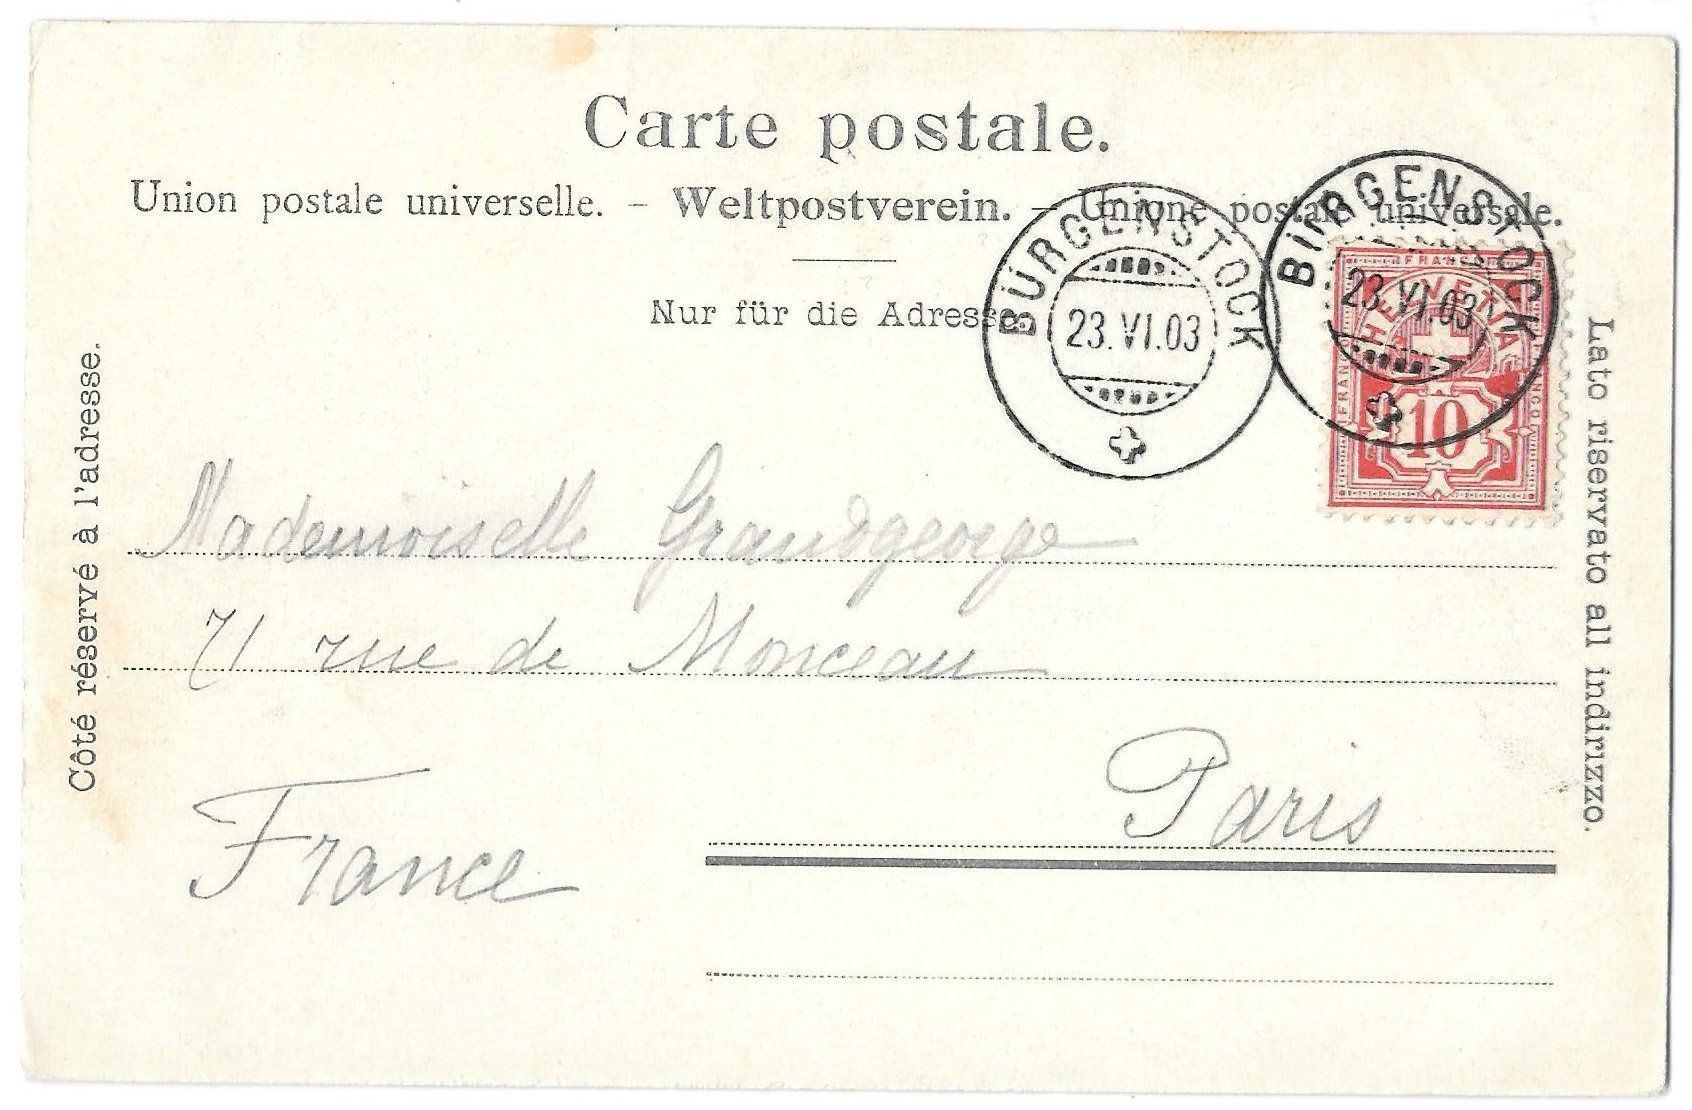 Carte postale.
Union postale universelle. – Weltpostverein. – Unione postale universale.
Nur für die Adresse
BÜRGENSTOCK
23.VI.03
BÜRGENSTOCK
23.VI.03
FRANCO
HELVETIA
FRANCO
FRANCO
10
Côté réservé à l'adresse.
Lato riservato all indirizzo.
Mademoiselle Grandgeorge
71 rue de Monceau
Paris
France